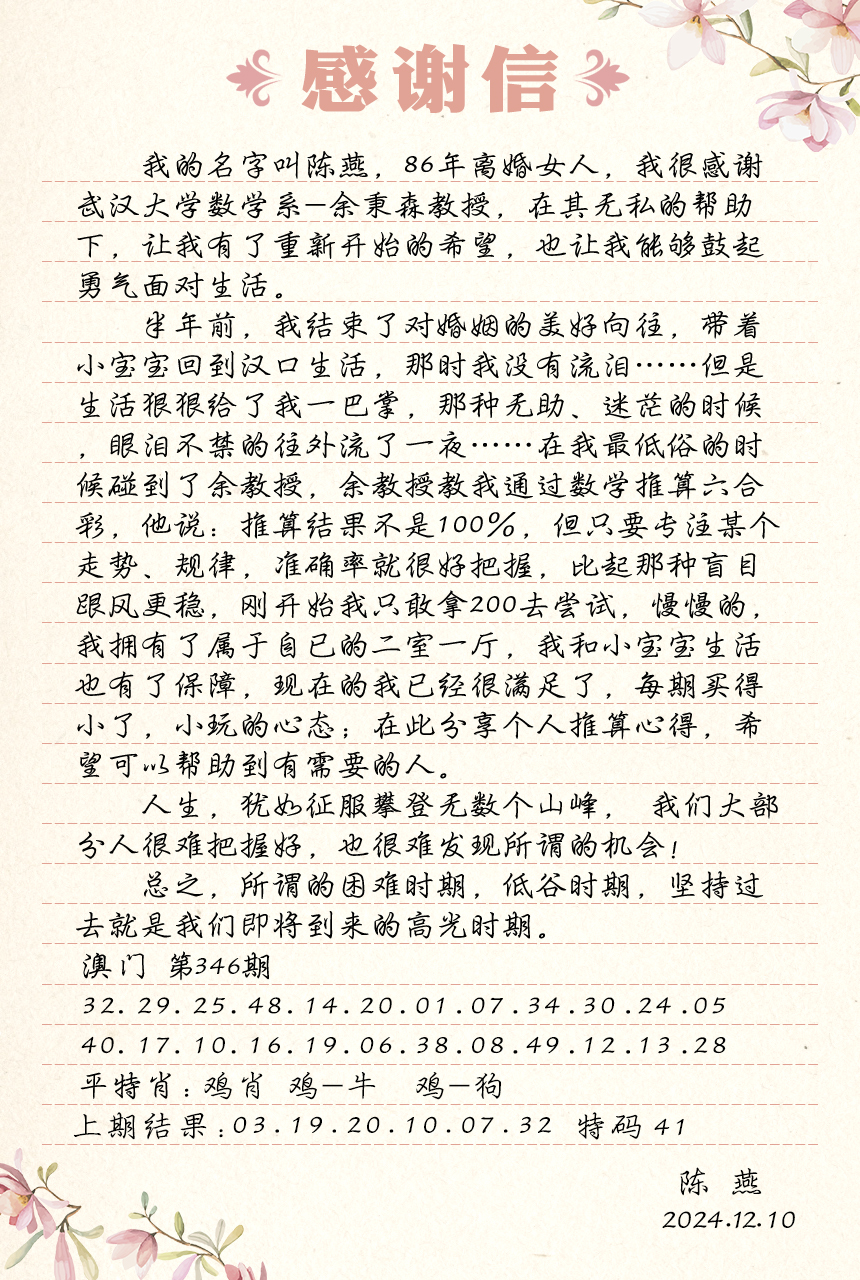 感谢信
我的名字叫陈燕，86年离婚女人，我很感谢
武汉大学数学系—余秉森教授，在其无私的帮助
下，让我有了重新开始的希望，也让我能够鼓起
勇气面对生活。
半年前，我结束了对婚姻的美好向往，带着
小宝宝回到汉口生活，那时我没有流泪……但是
生活狠狠给了我一巴掌，那种无助、迷茫的时候
，眼泪不禁的往外流了一夜……在我最低俗的时
候碰到了余教授，余教授教我通过数学推算六合
彩，他说：推算结果不是100%，但只要专注某个
走势、规律，准确率就很好把握，比起那种盲目
跟风更稳，刚开始我只敢拿200去尝试，慢慢的，
我拥有了属于自已的二室一厅，我和小宝宝生活
也有了保障，现在的我已经很满足了，每期买得
小了，小玩的心态；在此分享个人推算心得，希
望可以帮助到有需要的人。
人生，犹如征服攀登无数个山峰， 我们大部
分人很难把握好，也很难发现所谓的机会！
总之，所谓的困难时期，低谷时期，坚持过
去就是我们即将到来的高光时期。
澳门 第346期
32.29.25.48.14.20.01.07.34.30.24.05
40.17.10.16.19.06.38.08.49.12.13.28
平特肖：鸡肖 鸡—牛 鸡—狗
上期结果：03.19.20.10.07.32 特码 41
陈 燕
2024.12.10